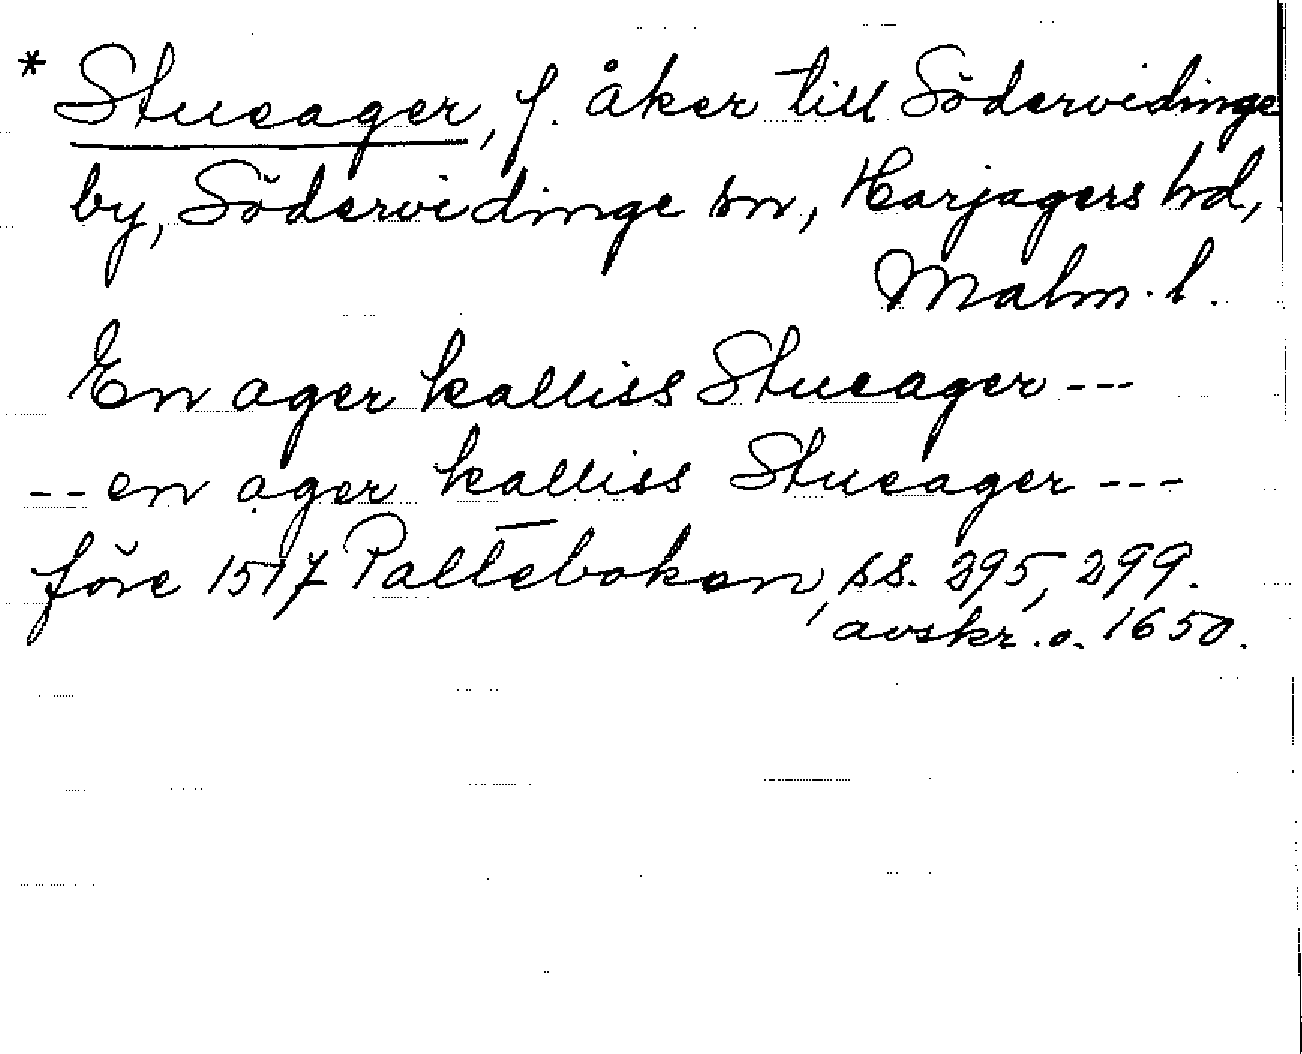 * Stueager, f. åker till Södervidinge
by, Södervidinge sn, Harjagers hd,
Malm. l.
En ager kalliss Stueager ---
-- en ager kalliss Stueager ---
före 1517 Pallebokan, ss. 295, 299.
avskr. o. 1650.